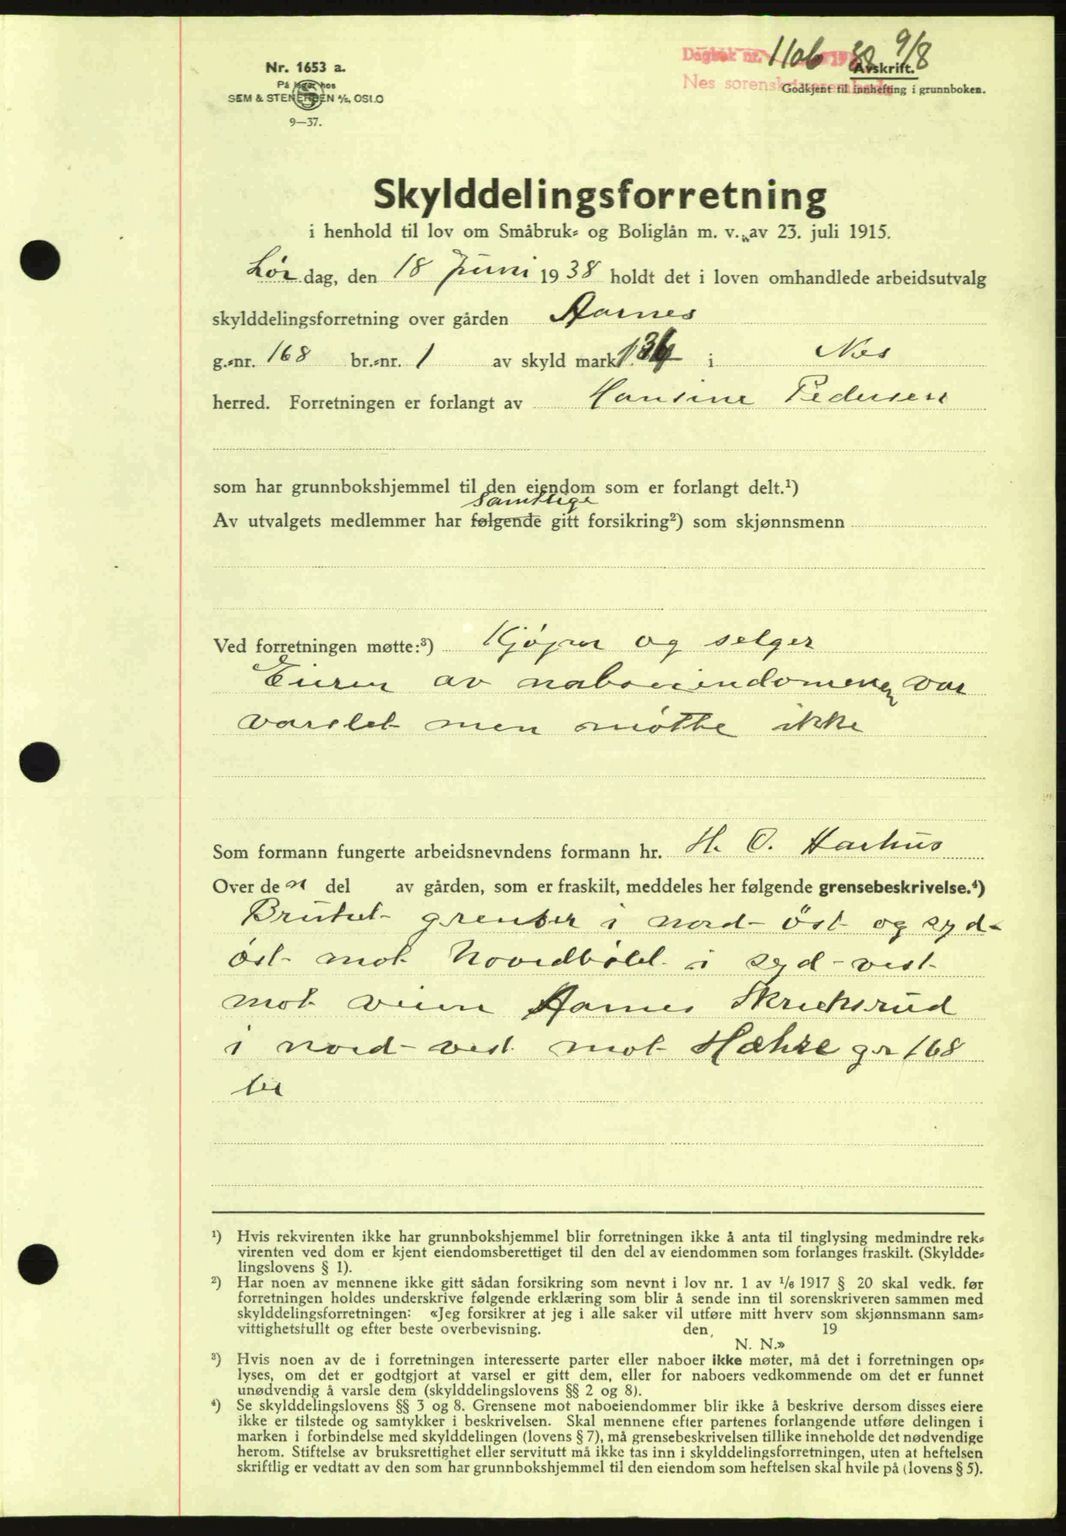 Dagbok nr. 1106 1938 9/8
Nes sorenskriverembede
Avskrift.
Godkjent til innhefting i grunnboken.
Nr. 1653 a.
På lager hos
SEM & STENERSEN A/S, OSLO
9—37.
Skylddelingsforretning
i henhold til lov om Småbruk- og Boliglån m. v. av 23. juli 1915.
Lør dag, den 18 Juni 1938 holdt det i loven omhandlede arbeidsutvalg
skylddelingsforretning over gården Aarnes
g.-nr. 168 br.-nr. 1 av skyld mark i Nes
herred. Forretningen er forlangt av Hansine Pedersen
som har grunnbokshjemmel til den eiendom som er forlangt delt.¹)
samtlige
Av utvalgets medlemmer har følgende gitt forsikring²) som skjønnsmenn
Ved forretningen møtte:³) Kjøper og selger
Eieren av naboeiendommen var
varslet men møtte ikke
Som formann fungerte arbeidsnevndens formann hr. H. O. Harhus
Over de n del av gården, som er fraskilt, meddeles her følgende grensebeskrivelse.⁴)
Bruket grenser i nord-öst og syd-
öst mot Hovedbölet i syd-vest
mot veien Aarnes Skriksrud
i nord-vest mot Hæhre gr 168
br
¹) Hvis rekvirenten ikke har grunnbokshjemmel blir forretningen ikke å anta til tinglysing medmindre rek-
virenten ved dom er kjent eiendomsberettiget til den del av eiendommen som forlanges fraskilt. (Skyldde-
lingslovens § 1).
²) Har noen av mennene ikke gitt sådan forsikring som nevnt i lov nr. 1 av 1/6 1917 § 20 skal vedk. før
forretningen holdes underskrive følgende erklæring som blir å sende inn til sorenskriveren sammen med
skylddelingsforretningen: «Jeg forsikrer at jeg i alle saker vil utføre mitt hverv som skjønnsmann sam-
vittighetsfullt og efter beste overbevisning. den, 19
N. N.»
³) Hvis noen av de i forretningen interesserte parter eller naboer ikke møter, må det i forretningen op-
lyses, om det er godtgjort at varsel er gitt dem, eller for naboers vedkommende om det er funnet
unødvendig å varsle dem (skylddelingslovens §§ 2 og 8).
⁴) Se skylddelingslovens §§ 3 og 8. Grensene mot naboeiendommer blir ikke å beskrive dersom disses eiere
ikke er tilstede og samtykker i beskrivelsen. Skal mennene efter partenes forlangende utføre delingen i
marken i forbindelse med skylddelingen (lovens § 7), må grensebeskrivelsen tillike inneholde det nødvendige
herom. Stiftelse av bruksrettighet eller servitutt må ikke tas inn i skylddelingsforretningen, uten at heftelsen
skriftlig er vedtatt av den som har grunnbokshjemmel til den eiendom som heftelsen skal hvile på (lovens § 5).